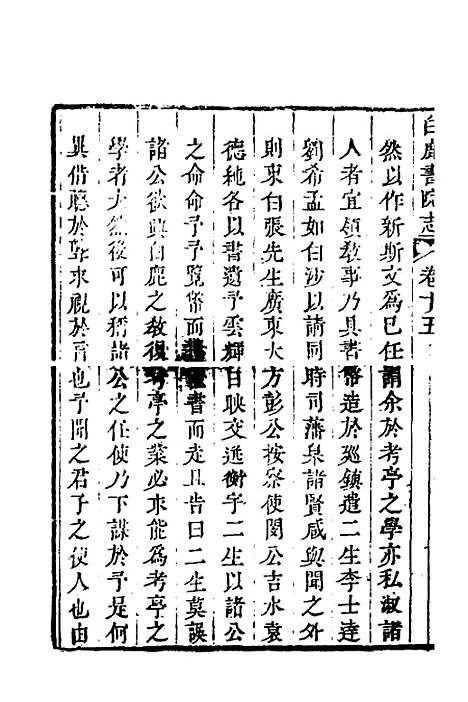 白鹿書院志 卷十五
然以作新斯文為已任謂余於考亭之學亦私淑諸
人者宜領敎事乃具書幣造於廵鎮遣二生李士逹
劉希孟如白沙以請同時司藩臬諸賢咸與聞之外
則東白張先生廣東大方彭公按察使閔公吉水袁
德純各以書遺予雲輝日映交進衡宇二生以諸公
之命命予予覽幣而書而走且告曰二生莫誤
諸公欲興白鹿之敎復考亭之業必求能為考亭之
學者夫然後可以稱諸公之任使乃下謀於予是何
異借聽於聾求視於盲也予聞之君子之使人也由